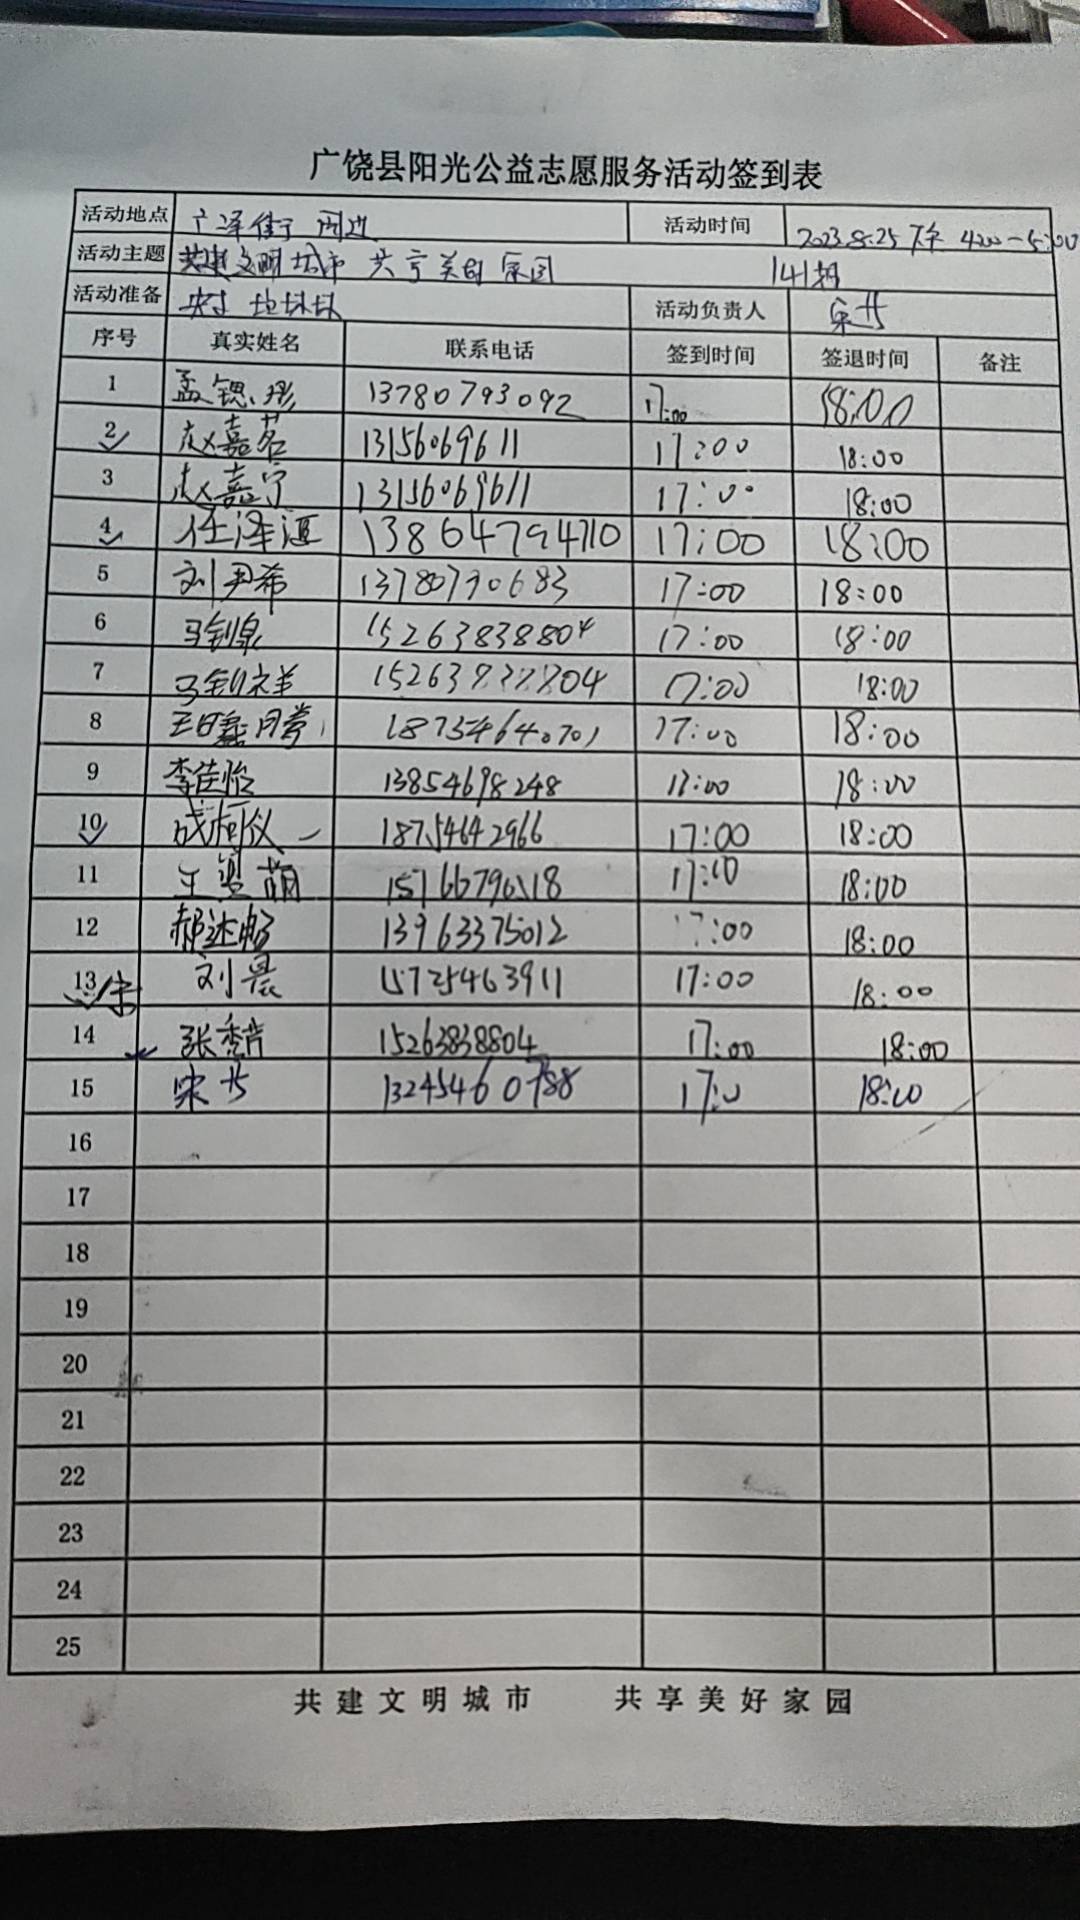 广饶县阳光公益志愿服务活动签到表
活动地点 广泽街 周边 活动时间 2023.8.25 下午 4:00-5:00
活动主题 共建文明城市 共享美好家园 141期
活动准备 垃圾袋 活动负责人 宋丹
序号 真实姓名 联系电话 签到时间 签退时间 备注
1 孟锶彤 13780793092 17:00 18:00
2 赵嘉茗 13156069611 17:00 18:00
3 赵嘉宁 13156069611 17:00 18:00
4 任泽湛 13864794710 17:00 18:00
5 刘尹希 13780790683 17:00 18:00
6 马钊泉 15263838804 17:00 18:00
7 马钊祥 15263838804 17:00 18:00
8 18754640701 17:00 18:00
9 李佳怡 13854698248 17:00 18:00
10 成柯仪 18754642966 17:00 18:00
11 17:00 18:00
12 郝述畅 13963375012 17:00 18:00
13 刘晨 15725463911 17:00 18:00
14 张秀芹 15263838804 17:00 18:00
15 宋丹 13245460788 17:0 18:00
16
17
18
19
20
21
22
23
24
25
共建文明城市 共享美好家园